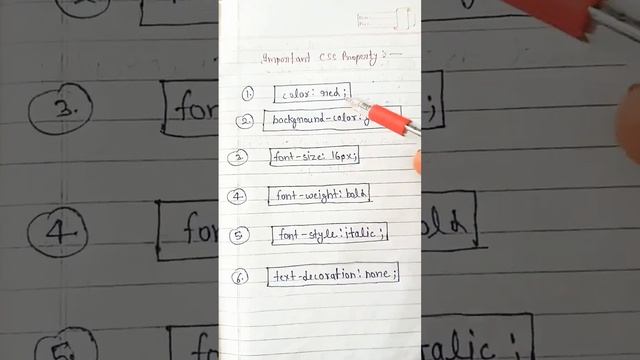 Important CSS Property :—
1. color: red;
2. background-color: g
3. font-size: 16px;
4. font-weight: bold
5. font-style: italic;
6. text-decoration: none;
3. fon
;
4. for
old
5.
talic;